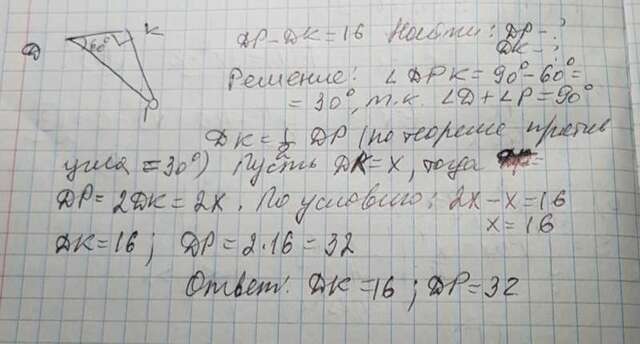 Д К 60° Р
DP-ДК=16 Найти: DP-?
ДК-?
Решение: ∠DPK=90°-60°=
=30°, т.к. ∠D+∠P=90°
ДК=1/2 DP (по теореме против
угла =30°) Пусть ДК=x, тогда
DP=2ДК=2x. По условию: 2x-x=16
x=16
ДК=16; DP=2·16=32
Ответ: ДК=16; DP=32